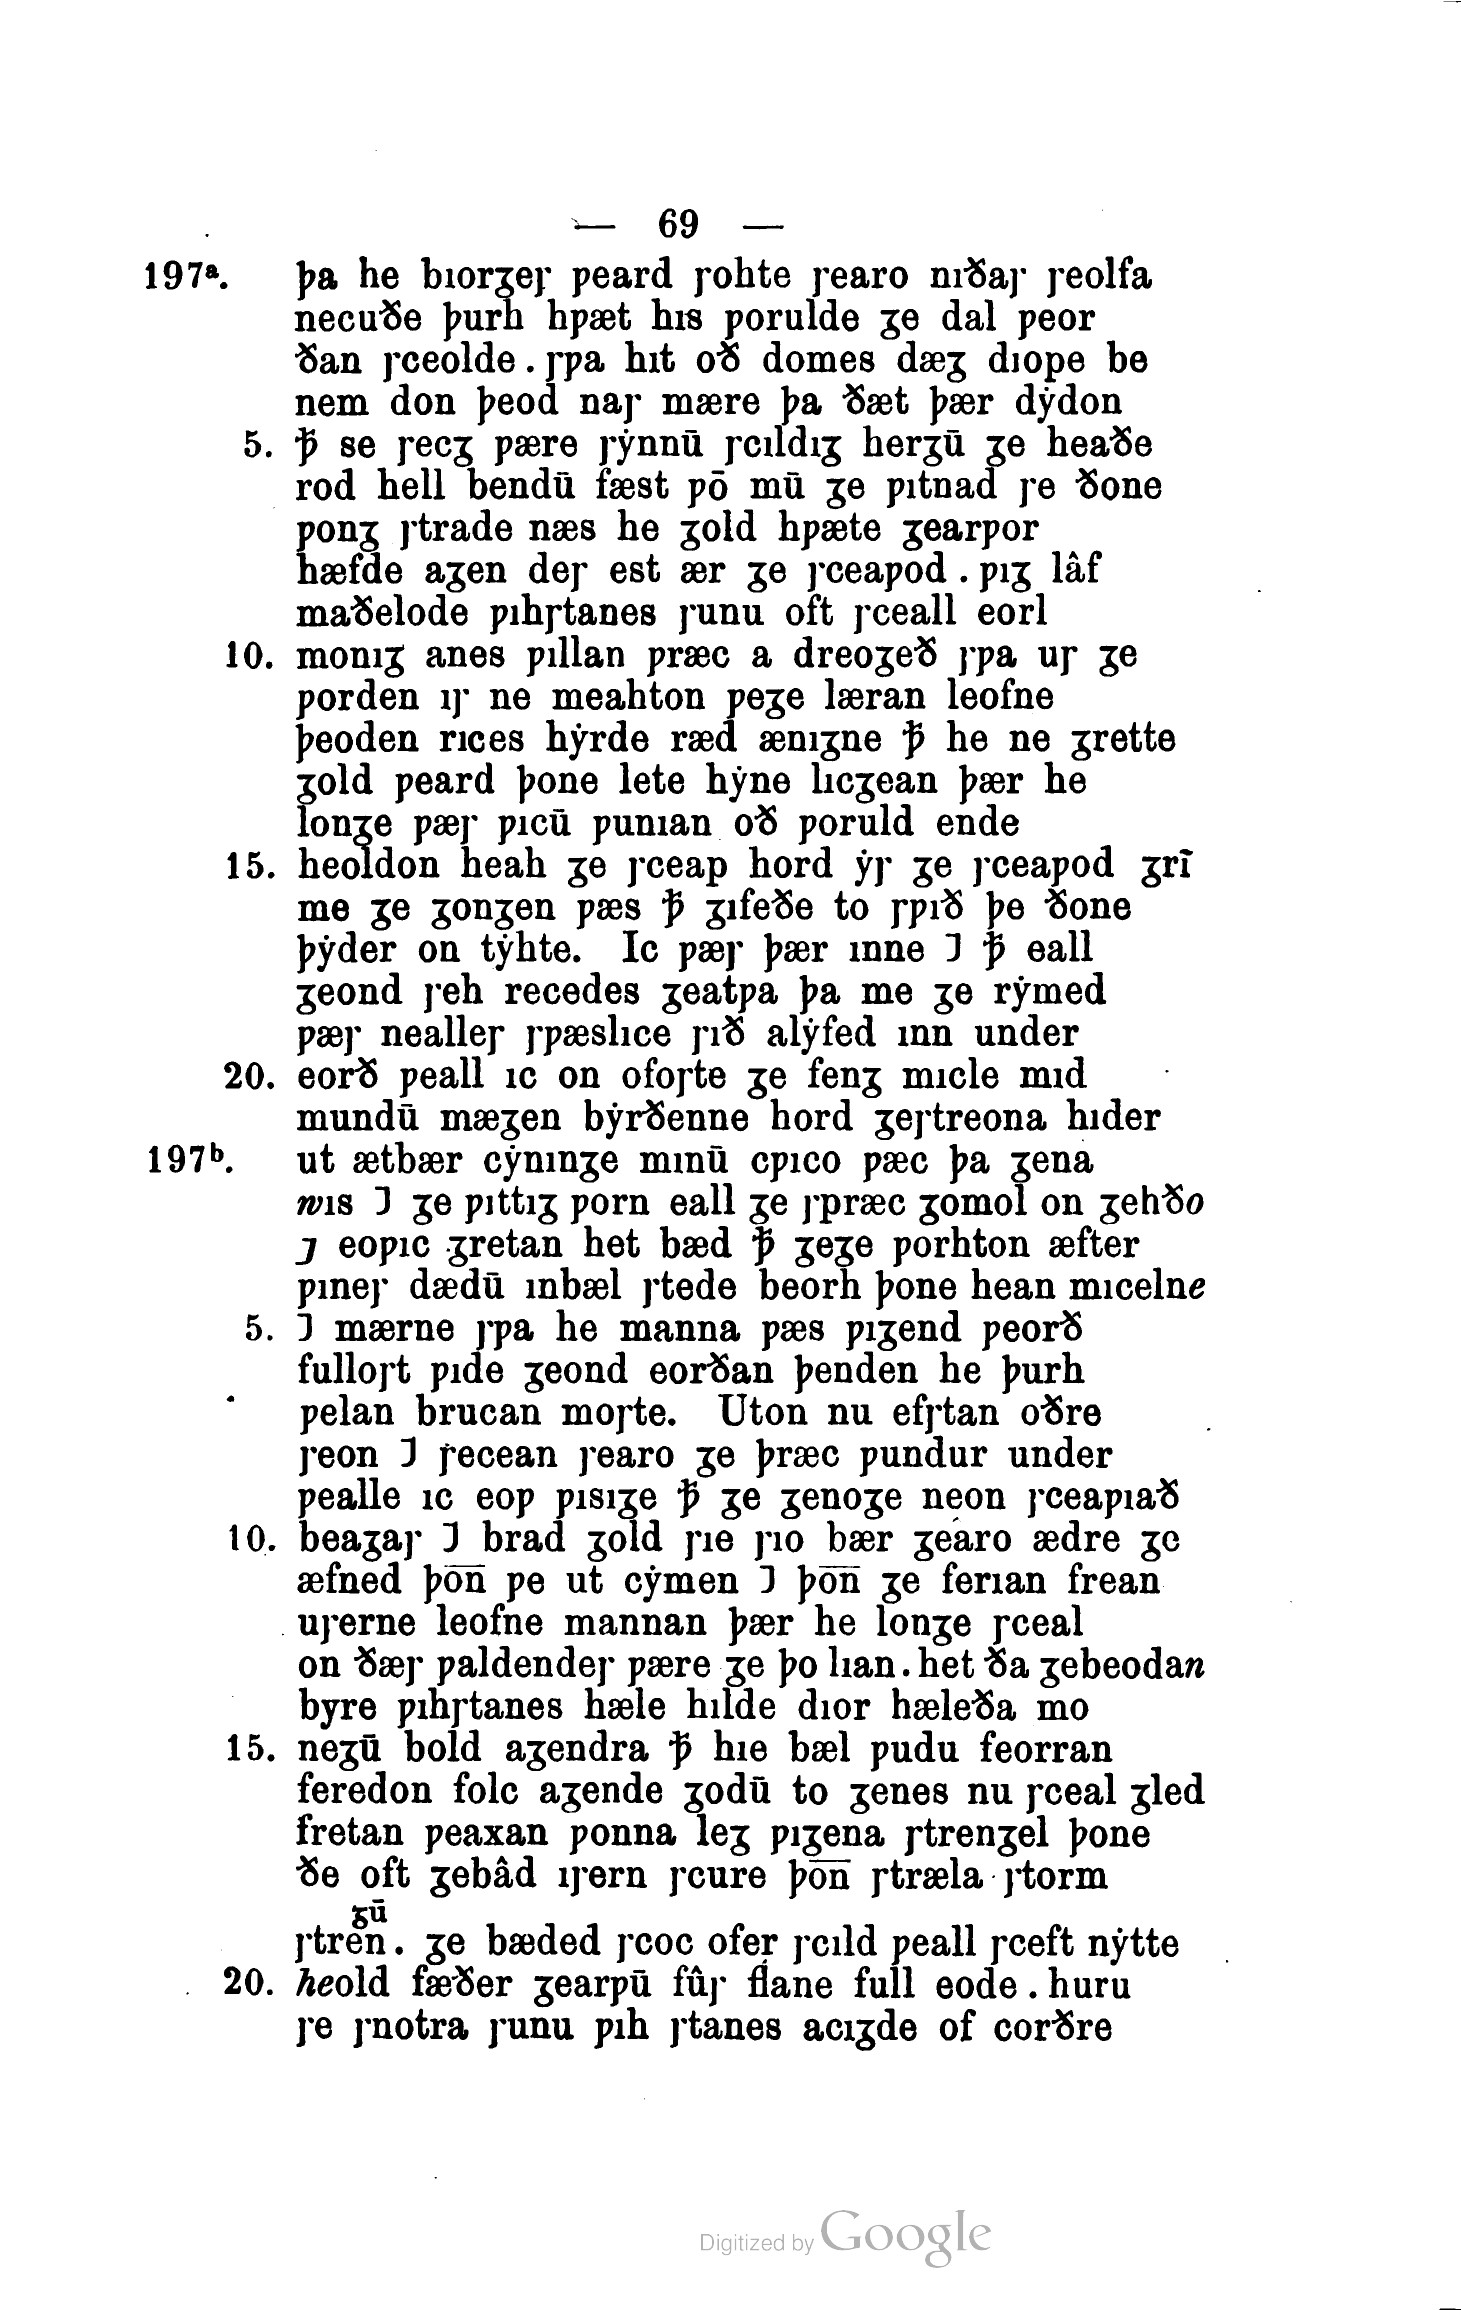 — 69 —
197ᵃ. þa he bıorʒeꞅ peard ꞅohte ꞅearo nıðaꞅ ꞅeolfa
necuðe þurh hpæt hıs porulde ʒe dal peor
ðan ꞅceolde . ꞅpa hıt oð domes dæʒ dıope be
nem don þeod naꞅ mære þa ðæt þær dẏdon
5. ꝥ se ꞅecʒ pære ꞅẏnnū ꞅcıldıʒ herʒū ʒe heaðe
rod hell bendū fæst pō mū ʒe pıtnad ꞅe ðone
ponʒ ꞅtrade næs he ʒold hpæte ʒearpor
hæfde aʒen deꞅ est ær ʒe ꞅceapod . pıʒ lâf
maðelode pıhꞅtanes ꞅunu oft ꞅceall eorl
10. monıʒ anes pıllan præc a dreoʒeð ꞅpa uꞅ ʒe
porden ıꞅ ne meahton peʒe læran leofne
þeoden rıces hẏrde ræd ænıʒne ꝥ he ne ʒrette
ʒold peard þone lete hẏne lıcʒean þær he
lonʒe pæꞅ pıcū punıan oð poruld ende
15. heoldon heah ʒe ꞅceap hord ẏꞅ ʒe ꞅceapod ʒrī
me ʒe ʒonʒen pæs ꝥ ʒıfeðe to ꞅpıð þe ðone
þẏder on tẏhte. Ic pæꞅ þær ınne ⁊ ꝥ eall
ʒeond ꞅeh recedes ʒeatpa þa me ʒe rẏmed
pæꞅ nealleꞅ ꞅpæslıce ꞅıð alẏfed ınn under
20. eorð peall ıc on ofoꞅte ʒe fenʒ mıcle mıd
mundū mæʒen bẏrðenne hord ʒeꞅtreona hıder
197ᵇ. ut ætbær cẏnınʒe mınū cpıco pæc þa ʒena
wıs ⁊ ʒe pıttıʒ porn eall ʒe ꞅpræc ʒomol on ʒehðo
⁊ eopıc ʒretan het bæd ꝥ ʒeʒe porhton æfter
pıneꞅ dædū ınbæl ꞅtede beorh þone hean mıcelne
5. ⁊ mærne ꞅpa he manna pæs pıʒend peorð
fulloꞅt pıde ʒeond eorðan þenden he þurh
pelan brucan moꞅte. Uton nu efꞅtan oðre
ꞅeon ⁊ ꞅecean ꞅearo ʒe þræc pundur under
pealle ıc eop pısıʒe ꝥ ʒe ʒenoʒe neon ꞅceapıað
10. beaʒaꞅ ⁊ brad ʒold ꞅıe ꞅıo bær ʒearo ædre ʒe
æfned þōn̄ pe ut cẏmen ⁊ þōn̄ ʒe ferıan frean
uꞅerne leofne mannan þær he lonʒe ꞅceal
on ðæꞅ paldendeꞅ pære ʒe þo lıan . het ða ʒebeodan
byre pıhꞅtanes hæle hılde dıor hæleða mo
15. neʒū bold aʒendra ꝥ hıe bæl pudu feorran
feredon folc aʒende ʒodū to ʒenes nu ꞅceal ʒled
fretan peaxan ponna leʒ pıʒena ꞅtrenʒel þone
ðe oft ʒebâd ıꞅern ꞅcure þōn̄ ꞅtræla ꞅtorm
ʒū
ꞅtren . ʒe bæded ꞅcoc ofer ꞅcıld peall ꞅceft nẏtte
20. heold fæðer ʒearpū fûꞅ flane full eode . huru
ꞅe ꞅnotra ꞅunu pıh ꞅtanes acıʒde of corðre
Digitized by Google